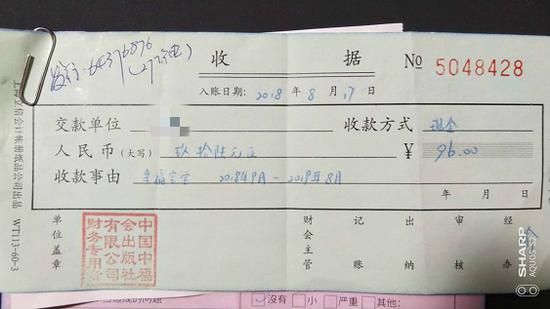 发行:64376876
收 据
№ 5048428
入账日期: 2018 年 8 月 17 日
交款单位
收款方式 现金
人民币(大写) 玖拾陆元正
¥ 96.00
收款事由 幸福宝宝 2018年9月-2019年8月
年 月 日
单位盖章
中国中福会出版社有限公司财务专用章
财会主管
记账
出纳
审核
经办
上海立信会计帐册纸品公司出品 WT113-60-3
SHARP AQUOS S2
没有 小 严重 其他: